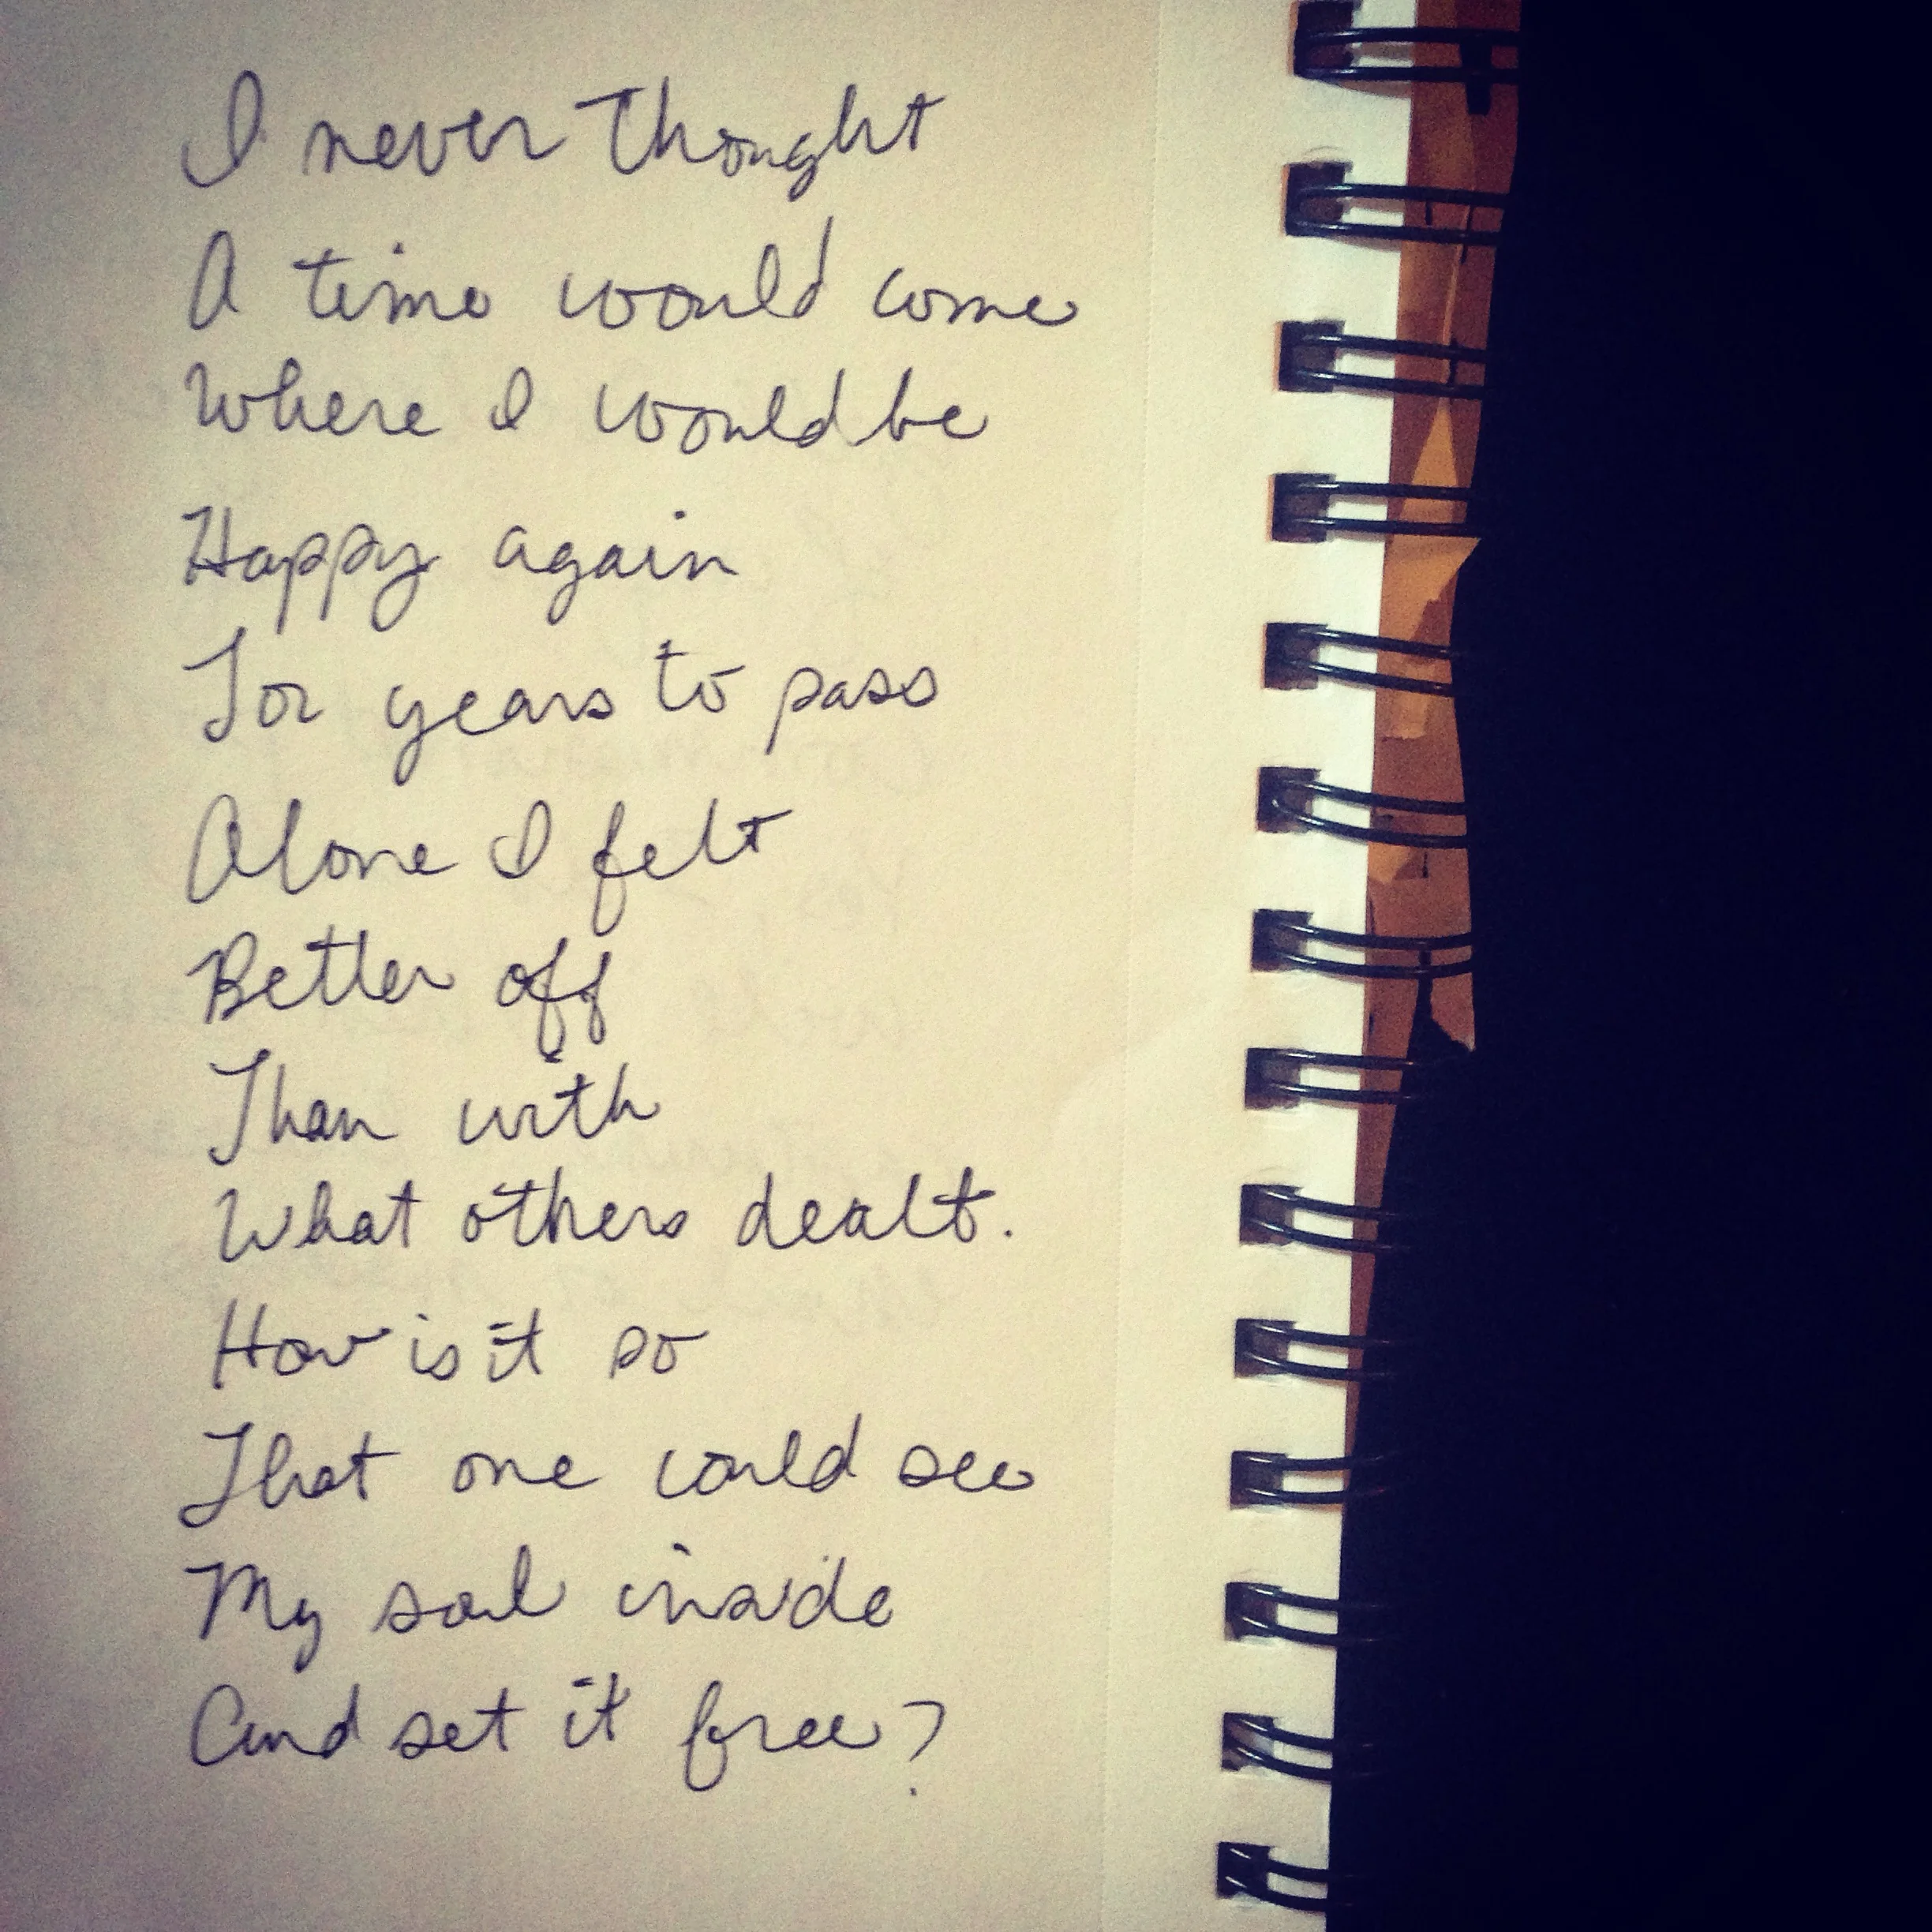 I never thought
A time would come
Where I would be
Happy again
For years to pass
Alone I felt
Better off
Than with
What others dealt.
How is it so
That one could see
My soul inside
And set it free?